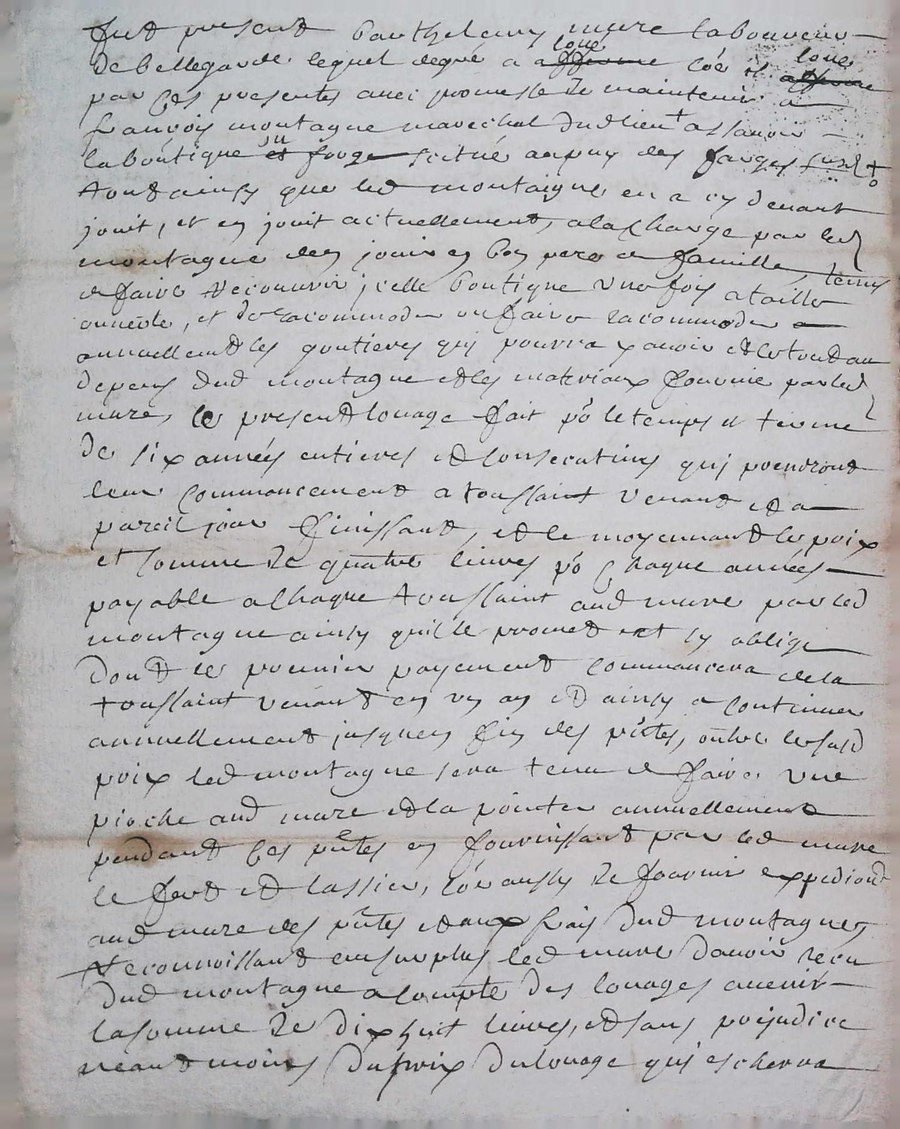 fut present barthelemy mure laboureur
de bellegarde lequel degré a affermé loué co͞e il afferme loue
par ces presentes avec promesse de maintenir a
françois montagne marechal dud lieu + assavoir
la boutique et forge scitué au puy des farges susd +
tout ainsy que led montaigne en a cy devant
jouit, et en jouit actuellement, a la charge par led
montagne den jouir en bon pere de famille, tenu
de faire recouvrir icelle boutique une fois a taille
ouverte, et de racommoder ou faire racommoder
annuellement les goutieres qui pourra y avoir et le tout au
depens dud montagne et les materiaux fournie par led
mure, le present louage fait po͞ le temps et terme
de six années entieres et consecutives qui prendront
leur commancement a toussaint venant et a
pareil jour finissant, et le moyennant le prix
et somme de quatre livres po͞ chaque années
payable a chaque toussaint aud mure par led
montagne ainsy quil le promet et sy oblige
dont le premier payement commancera de la
toussaint venant en un an et ainsy a continuer
annuellement jusques fin des p͞ntes, outre le susd
prix led montagne sera tenu de faire une
pioche aud mure et la pointer annuellement
pendant ces p͞ntes en fournissant par led mure
le fert et lassier, co͞e aussy de fournir expediont
aud mure des p͞ntes et aux frais dud montagne,
reconnoissant en surplus led mure davoir receu
dud montagne a compte des louages avenir
la somme de dix huit livres, et sans prejudice
neantmoins du prix du louage qui escherra